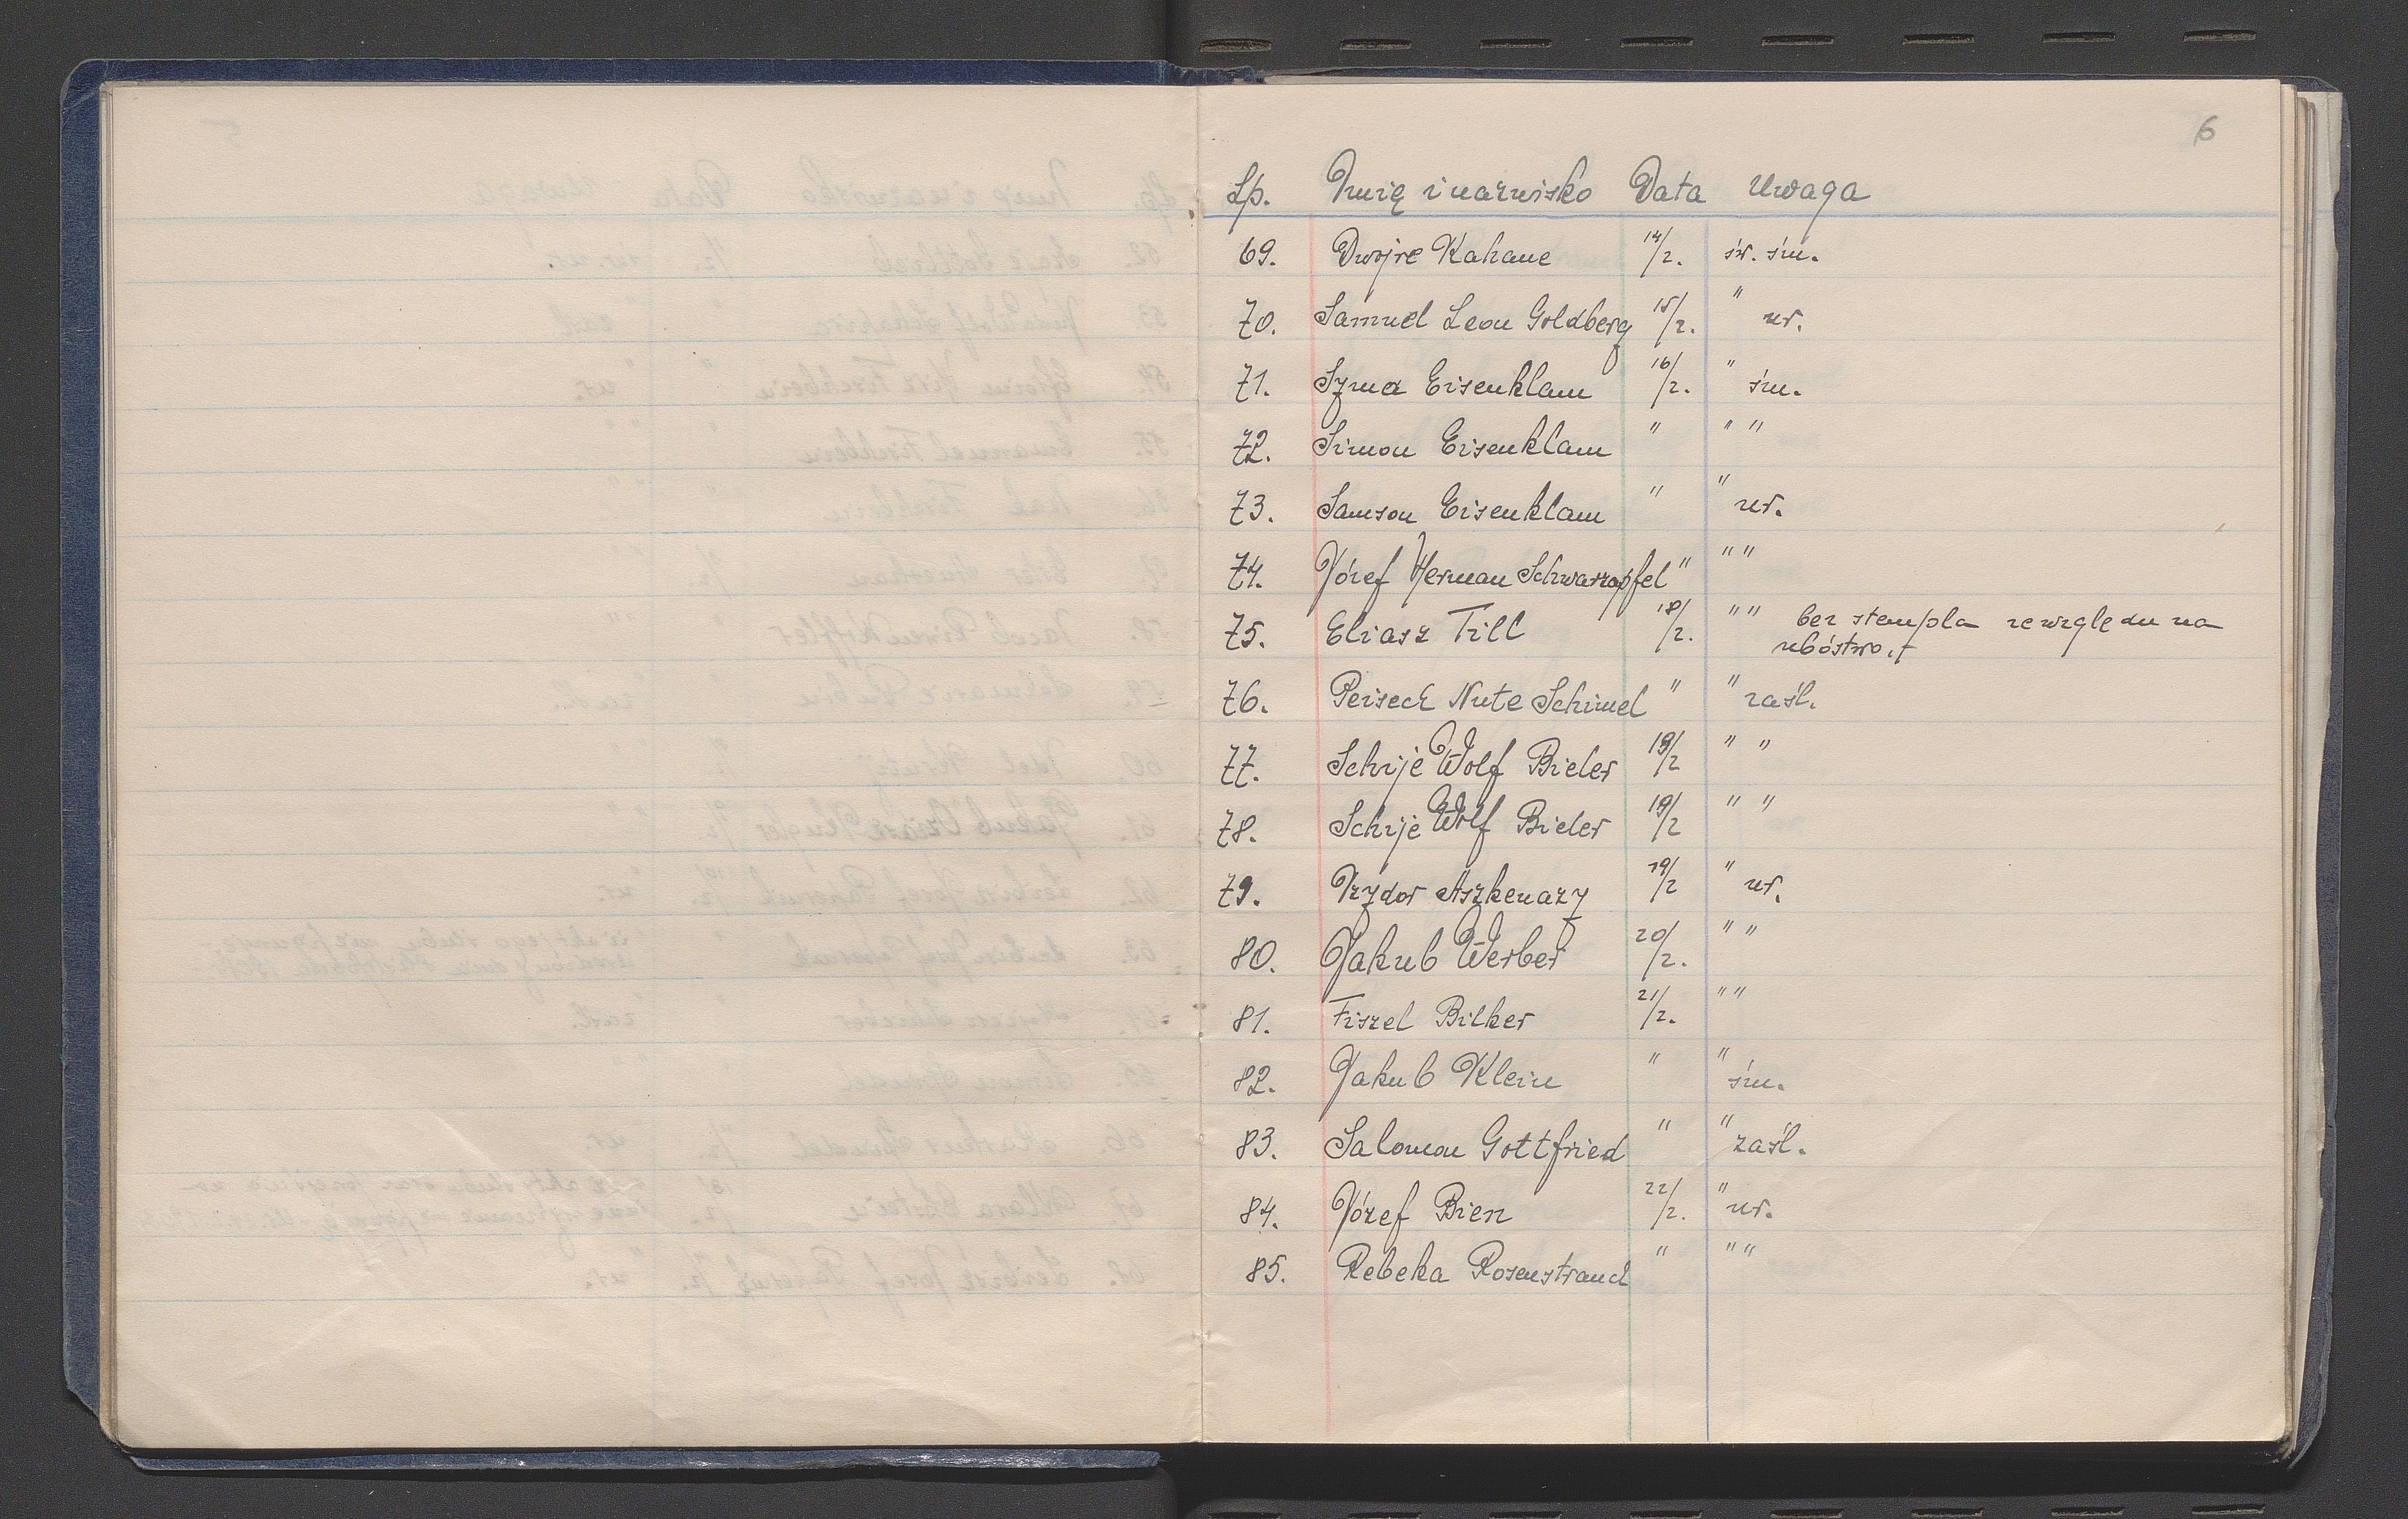 6
Lp. Imię i nazwisko Data Uwaga
69. Dwojre Kahane 14/2. św. śm.
70. Samuel Leon Goldberg 15/2. " ur.
71. Szma Eisenklam 16/2. " śm.
72. Simon Eisenklam " " "
73. Samson Eisenklam " " ur.
74. Józef Herman Schwarzapfel " " "
75. Eliasz Till 18/2. " " bez stempla ze względu na
ubóstwo.
76. Peisech Nute Schimel " " zaśl.
77. Schije Wolf Bieler 19/2 " "
78. Schije Wolf Bieler 19/2 " "
79. Izydor Aszkenazy 19/2 " ur.
80. Jakub Werber 20/2. " "
81. Fiszel Bilker 21/2. " "
82. Jakub Klein " " śm.
83. Salomon Gottfried " " zaśl.
84. Józef Bien 22/2. " ur.
85. Rebeka Rosenstrauch " " "